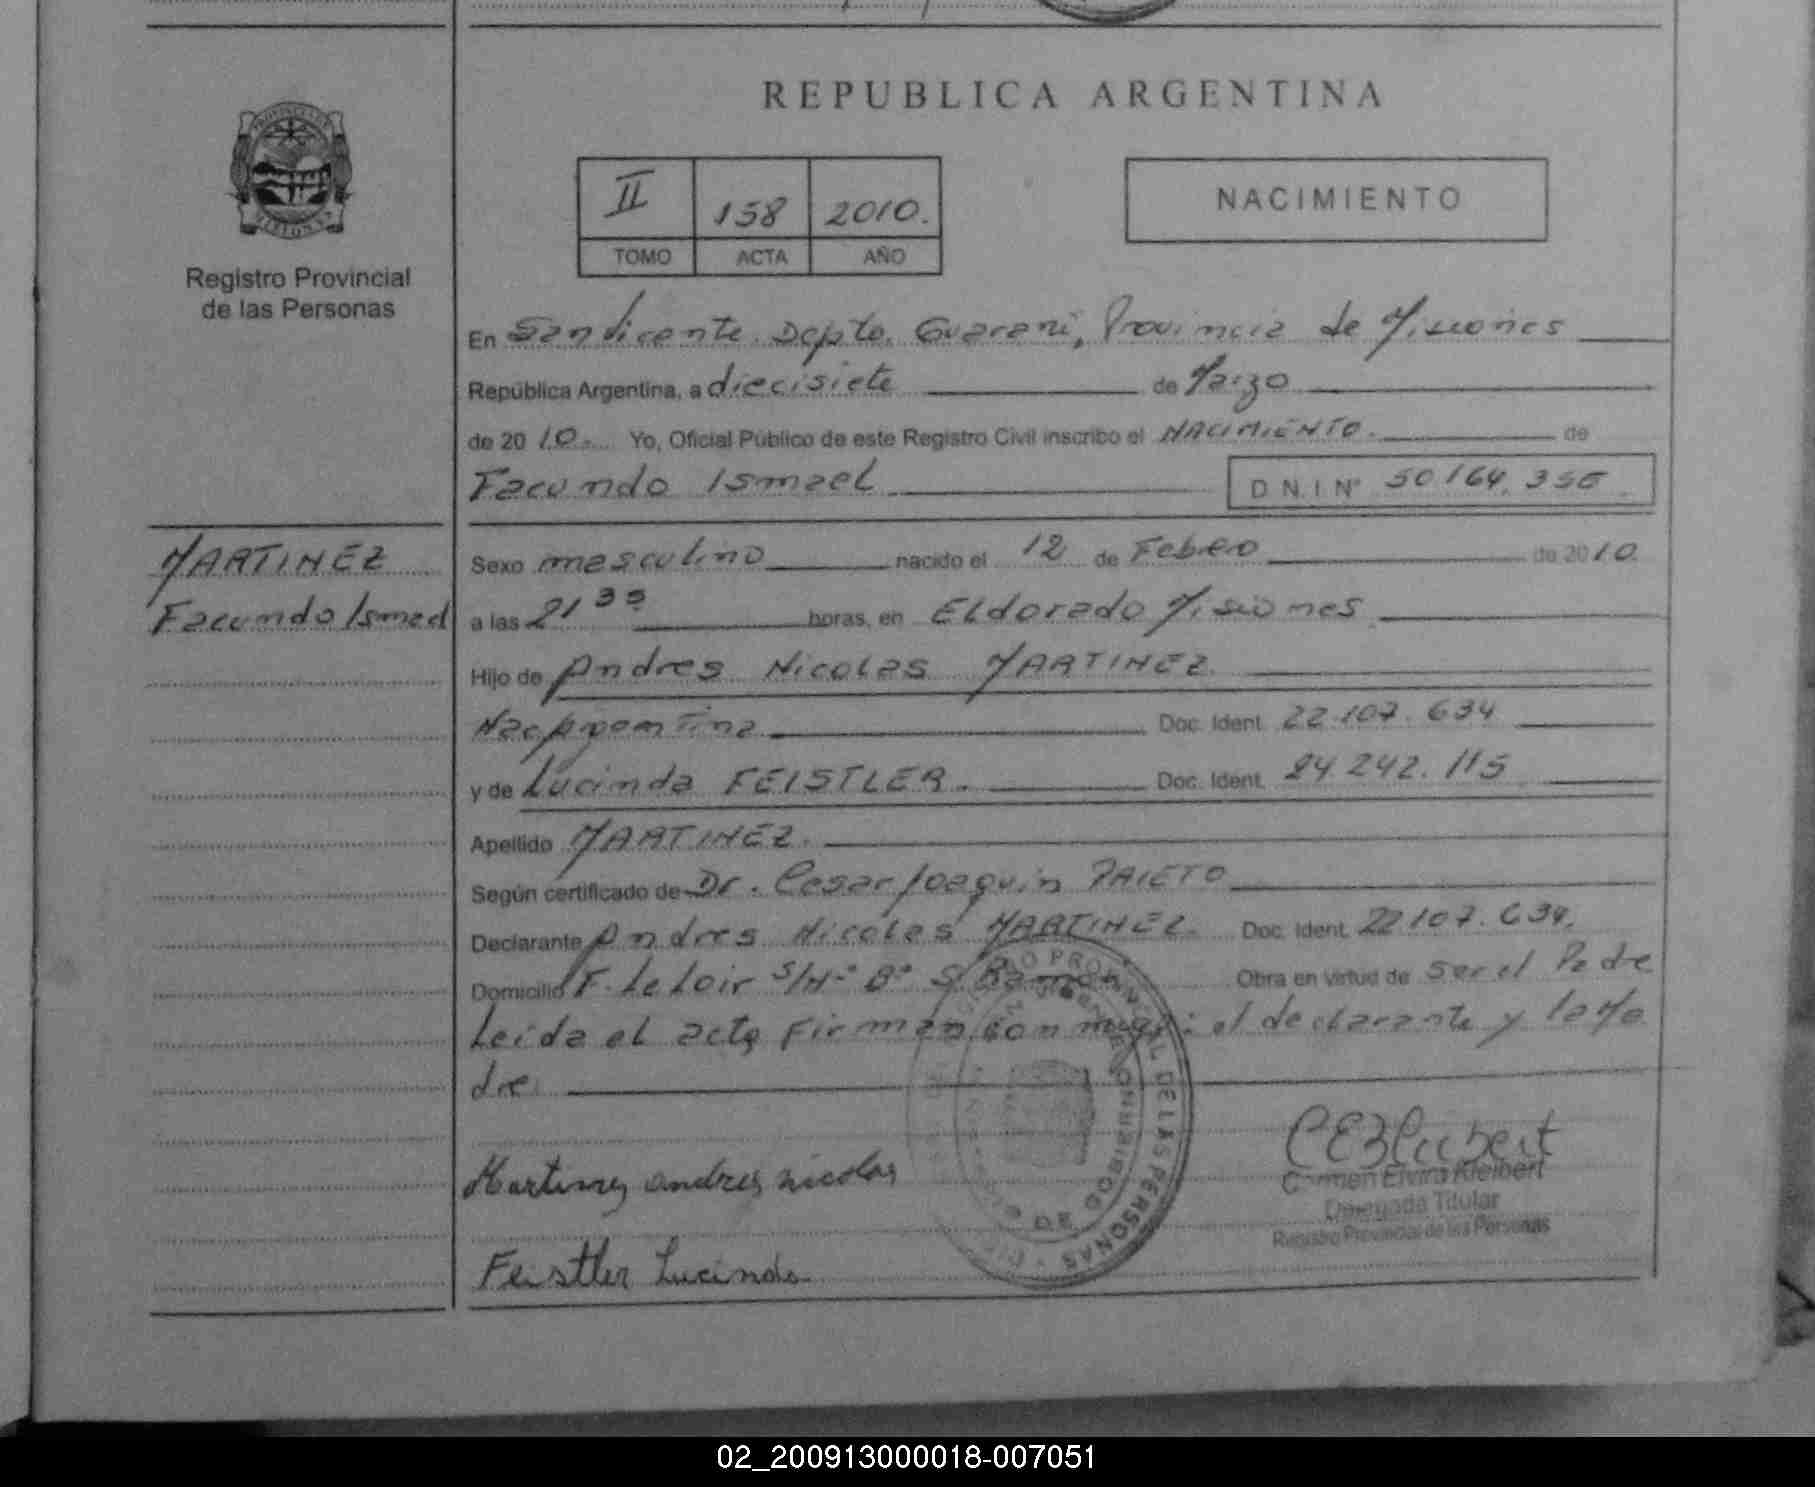 REPUBLICA ARGENTINA
II 158 2010.
TOMO ACTA AÑO
NACIMIENTO
Registro Provincial
de las Personas
En San Vicente. Depto. Guarani, Provincia de Misiones
República Argentina, a diecisiete de Marzo
de 2010. Yo, Oficial Público de este Registro Civil inscribo el NACIMIENTO. de
Facundo Ismael D.N.I Nº 50164.356
MARTINEZ
Facundo Ismael
Sexo masculino nacido el 12 de Febreo de 2010.
a las 21 horas, en Eldorado Misiones
Hijo de Andres Nicolas MARTINEZ.
Nac Argentina Doc. Ident. 22.107.634
y de Lucinda FEISTLER. Doc. Ident. 24.242.115
Apellido MARTINEZ.
Según certificado de Dr. Cesar Joaquin PRIETO
Declarante Andres Nicolas MARTINEZ. Doc. Ident. 22107.634.
Domicilio F. Leloir S/Nº Bº S. Ramon Obra en virtud de ser el Padre
Leida el acta firman con migo: el declarante y la Ma
dre.
Martinez andres nicolas
Feistler Lucinda
PROVINCIAL DE LAS PERSONAS
Carmen Elvira Kleibert
Delegada Titular
Registro Provincial de las Personas
02_200913000018-007051